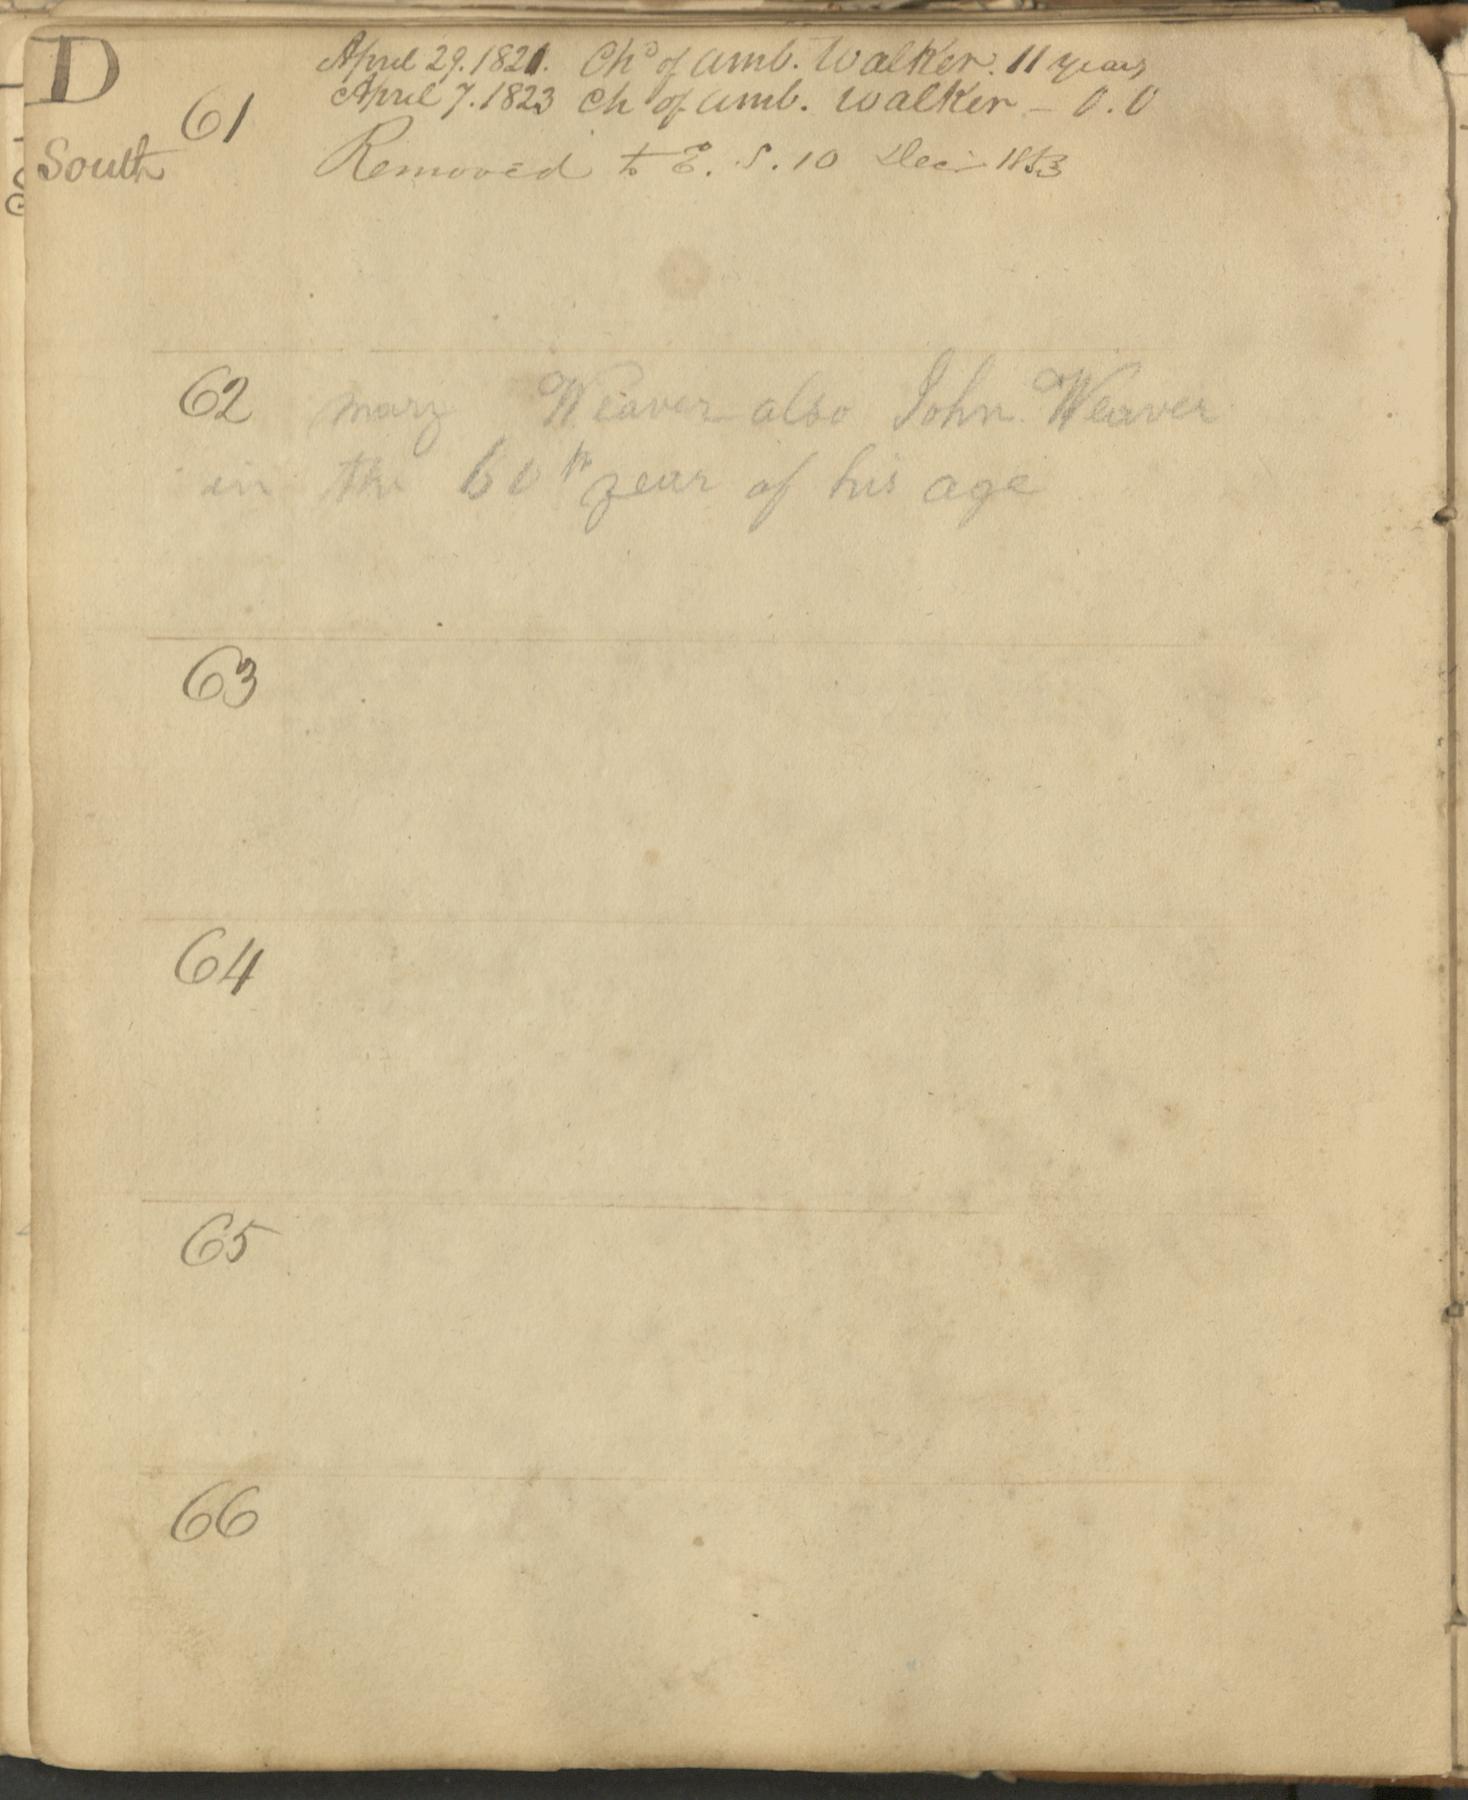 D
April 29. 1821. Chd of Amb. Walker. 11 years
61 April 7. 1823 Ch of Amb. Walker - 0.0
South Removed to E. S. 10 Dec 1853
62 Mary Weaver also John Weaver
in the 60th year of his age
63
64
65
66